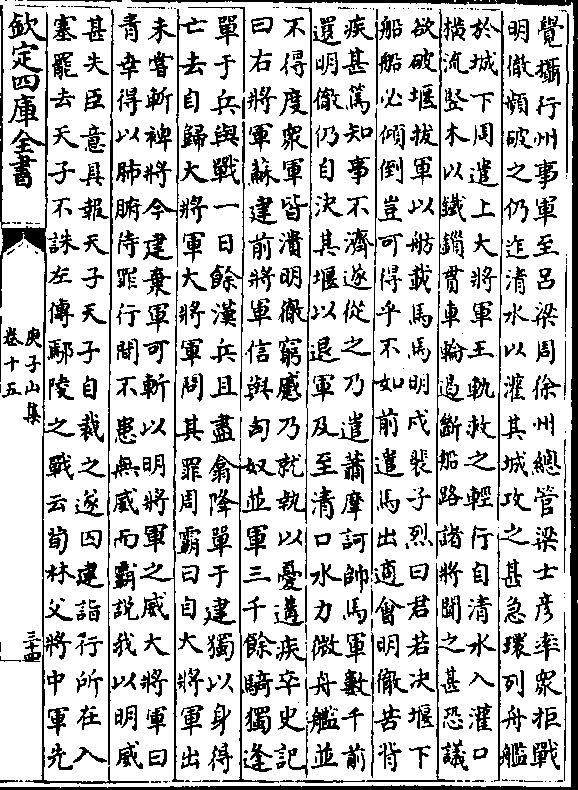 覺攝行州事軍至呂梁周徐州總管梁士彦率衆拒戰
明徹頻破之仍迮清水以灌其城攻之甚急環列舟艦
於城下周遣上大將軍王軌救之輕行自清水入灌口
横流竪木以鐵鎖貫車輪遏斷船路諸將聞之甚恐議
欲破堰拔軍以舫載馬馬明戍裴子烈曰君若决堰下
船船必傾倒豈可得乎不如前遣馬出適會明徹苦背
疾甚篤知事不濟遂從之乃遣蕭摩訶帥馬軍數千前
還明徹仍自決其堰以退軍及至清口水力微舟艦並
不得度衆軍皆潰明徹窮蹙乃就執以憂遘疾卒史記
曰右將軍蘇建前將軍信與匈奴並軍三千餘騎獨逢
單于兵與戰一日餘漢兵且盡翕降單于建獨以身得
亡去自歸大將軍大將軍問其罪周霸曰自大將軍出
未嘗斬裨將今建棄軍可斬以明將軍之威大將軍曰
青幸得以肺腑待罪行間不患無威而霸説我以明威
甚失臣意具報天子天子自裁之遂囚建詣行所在入
塞罷去天子不誅左傳鄢陵之戰云荀林父將中軍先
欽定四庫全書
庾子山集
卷十五
三十四